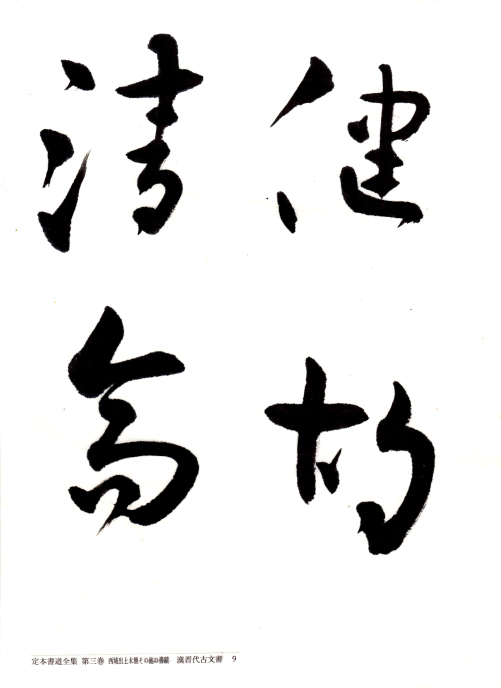 健
清高
定本書道全集 第三巻 西域出土木簡その他の書蹟 漢晋代古文書 9